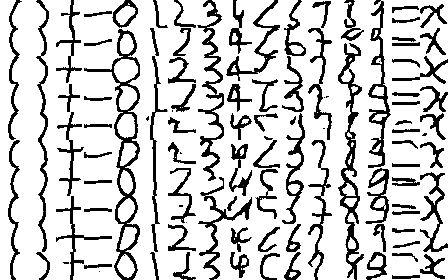 ( ) + - 0 1 2 3 4 5 6 7 8 9 = x
( ) + - 0 1 2 3 4 5 6 7 8 9 = x
( ) + - 0 1 2 3 4 5 6 7 8 9 = x
( ) + - 0 1 2 3 4 5 3 7 8 9 = x
( ) + - 0 1 2 3 4 5 3 7 8 9 = x
( ) + - 0 1 2 3 4 5 3 7 8 9 = x
( ) + - 0 1 2 3 4 5 6 7 8 9 = x
( ) + - 0 1 2 3 4 5 9 7 8 9 = x
( ) + - 0 1 2 3 4 5 6 7 8 9 = x
( ) + - 0 1 2 3 4 5 6 7 8 9 = x